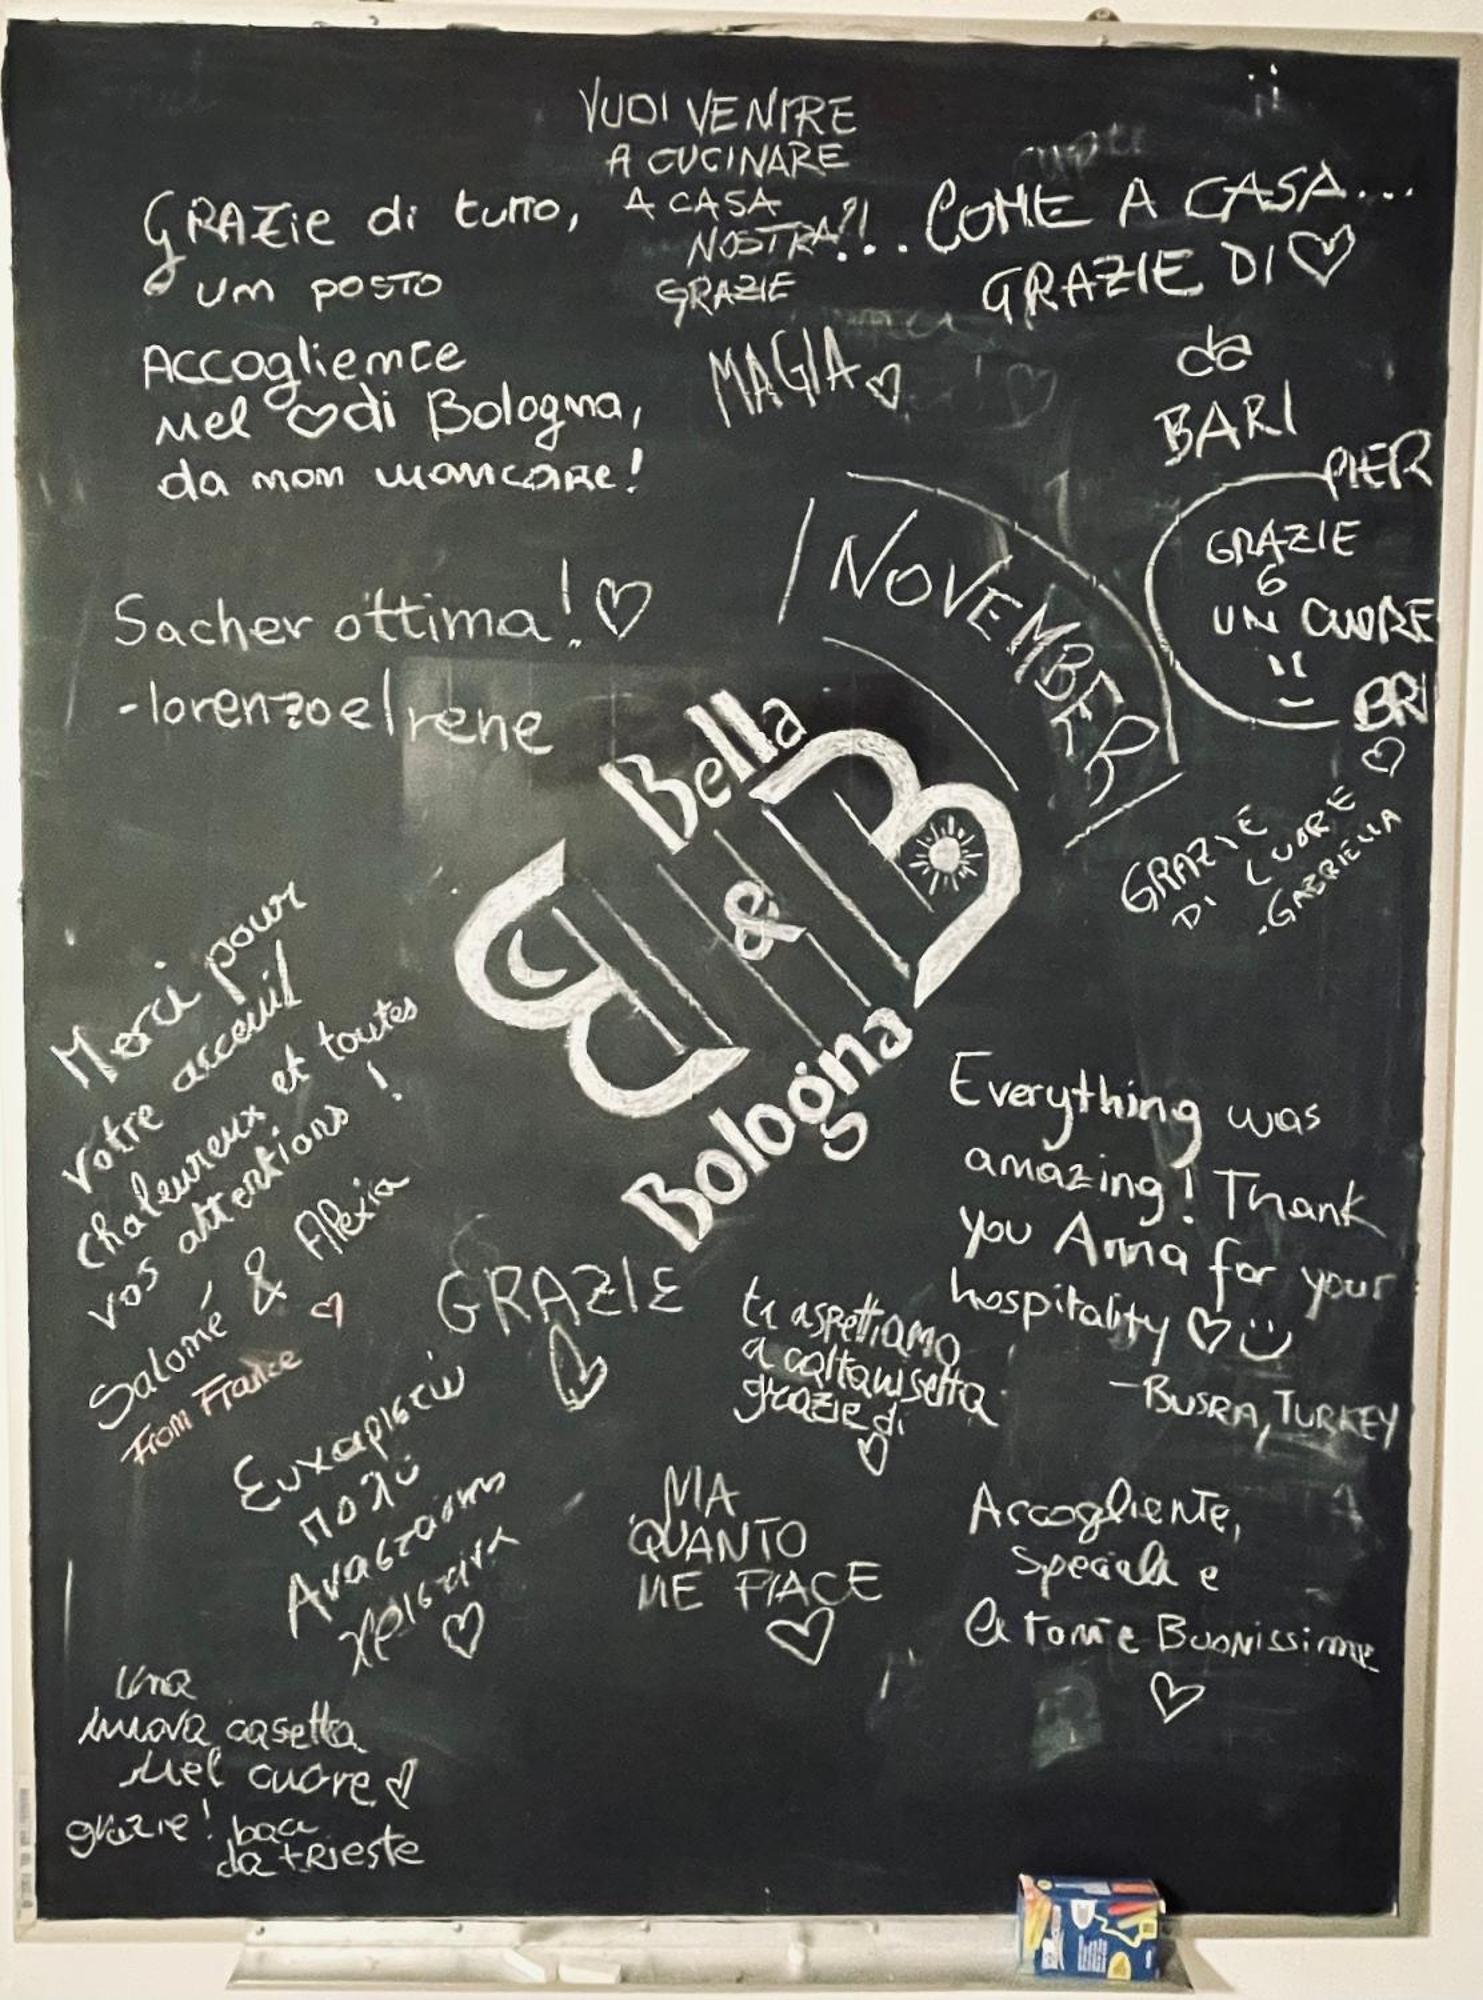 VUOI VENIRE
A CUCINARE
A CASA
NOSTRA?!
GRAZIE
MAGIA
GRAZie di tutto,
un posto
Accogliente
nel di Bologna,
da non mancare!
... COME A CASA...
GRAZIE DI
da
BARI
PIER
GRAZIE
6
UN CUORE
BRI
Sacher ottima!
-lorenzo e Irene
NOVEMBER
GRAZIE
DI CUORE
.GABRIELLA
Bella
B&B
Bologna
Merci pour
votre acceuil
chaleureux et toutes
vos attentions !
Salomé & Alexia
From France
Everything was
amazing! Thank
you Anna for your
hospitality
-BUSRA, TURKEY
GRAZIE
ti aspettiamo
a caltanisetta
grazie di
Ευχαριστώ
πολύ
Αναστάσης
Χριστίνα
MA
QUANTO
ME PIACE
Accogliente,
Speciale e
le torte Buonissime
Una
nuova casetta
nel cuore
grazie! baci
da trieste